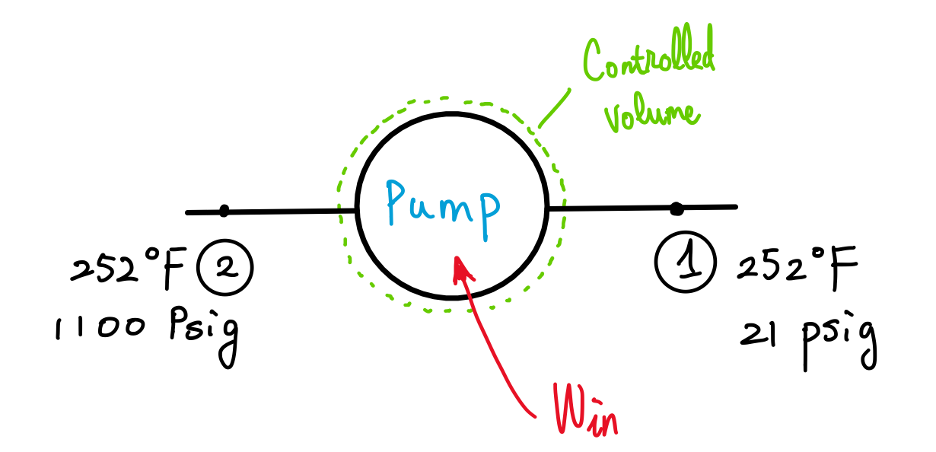 Controlled
volume
Pump
252°F ②
1100 Psig
① 252°F
21 psig
Win